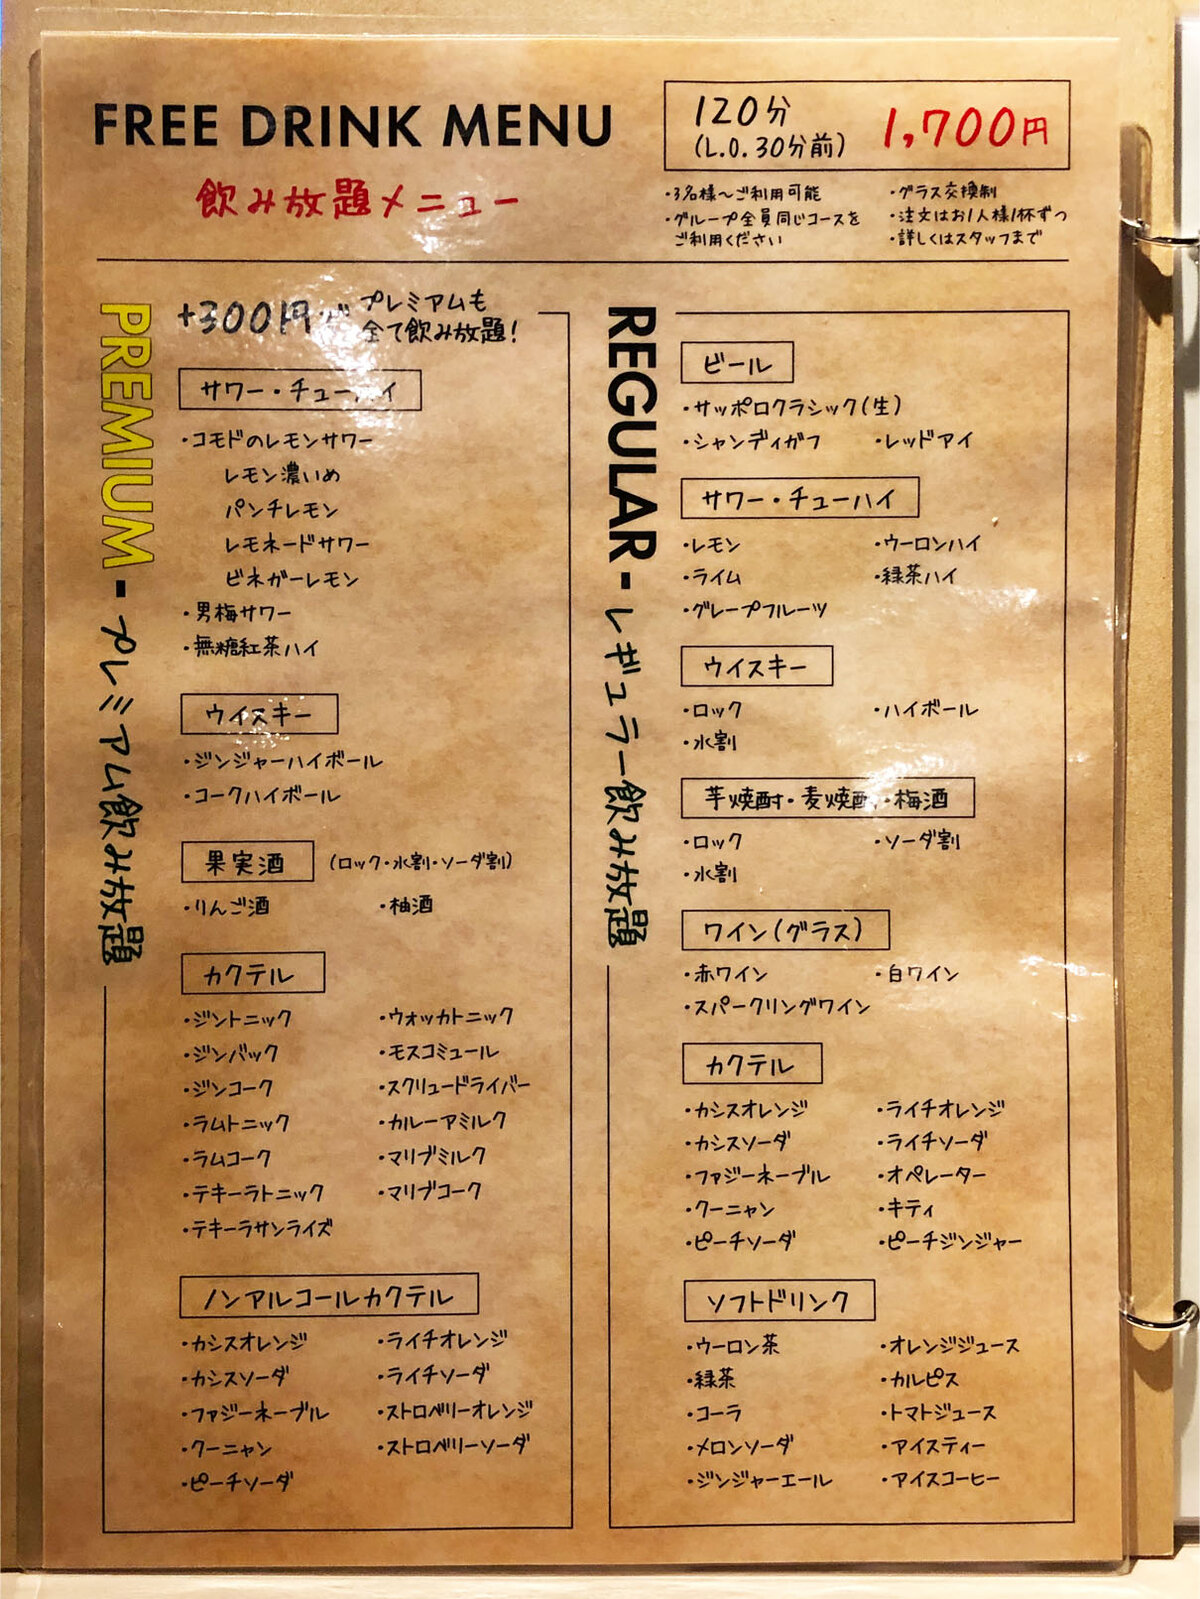 FREE DRINK MENU
飲み放題メニュー
120分
(L.O.30分前)
1,700円
・3名様〜ご利用可能
・グループ全員同じコースを
ご利用ください
・グラス交換制
・注文はお1人様1杯ずつ
・詳しくはスタッフまで
PREMIUM - プレミアム飲み放題
+300円で プレミアムも
全て飲み放題!
サワー・チューハイ
・コモドのレモンサワー
レモン濃いめ
パンチレモン
レモネードサワー
ビネガーレモン
・男梅サワー
・無糖紅茶ハイ
ウイスキー
・ジンジャーハイボール
・コークハイボール
果実酒 (ロック・水割・ソーダ割)
・りんご酒 ・柚酒
カクテル
・ジントニック ・ウォッカトニック
・ジンバック ・モスコミュール
・ジンコーク ・スクリュードライバー
・ラムトニック ・カルーアミルク
・ラムコーク ・マリブミルク
・テキーラトニック ・マリブコーク
・テキーラサンライズ
ノンアルコールカクテル
・カシスオレンジ ・ライチオレンジ
・カシスソーダ ・ライチソーダ
・ファジーネーブル ・ストロベリーオレンジ
・クーニャン ・ストロベリーソーダ
・ピーチソーダ
REGULAR - レギュラー飲み放題
ビール
・サッポロクラシック(生)
・シャンディガフ ・レッドアイ
サワー・チューハイ
・レモン ・ウーロンハイ
・ライム ・緑茶ハイ
・グレープフルーツ
ウイスキー
・ロック ・ハイボール
・水割
芋焼酎・麦焼酎・梅酒
・ロック ・ソーダ割
・水割
ワイン(グラス)
・赤ワイン ・白ワイン
・スパークリングワイン
カクテル
・カシスオレンジ ・ライチオレンジ
・カシスソーダ ・ライチソーダ
・ファジーネーブル ・オペレーター
・クーニャン ・キティ
・ピーチソーダ ・ピーチジンジャー
ソフトドリンク
・ウーロン茶 ・オレンジジュース
・緑茶 ・カルピス
・コーラ ・トマトジュース
・メロンソーダ ・アイスティー
・ジンジャーエール ・アイスコーヒー